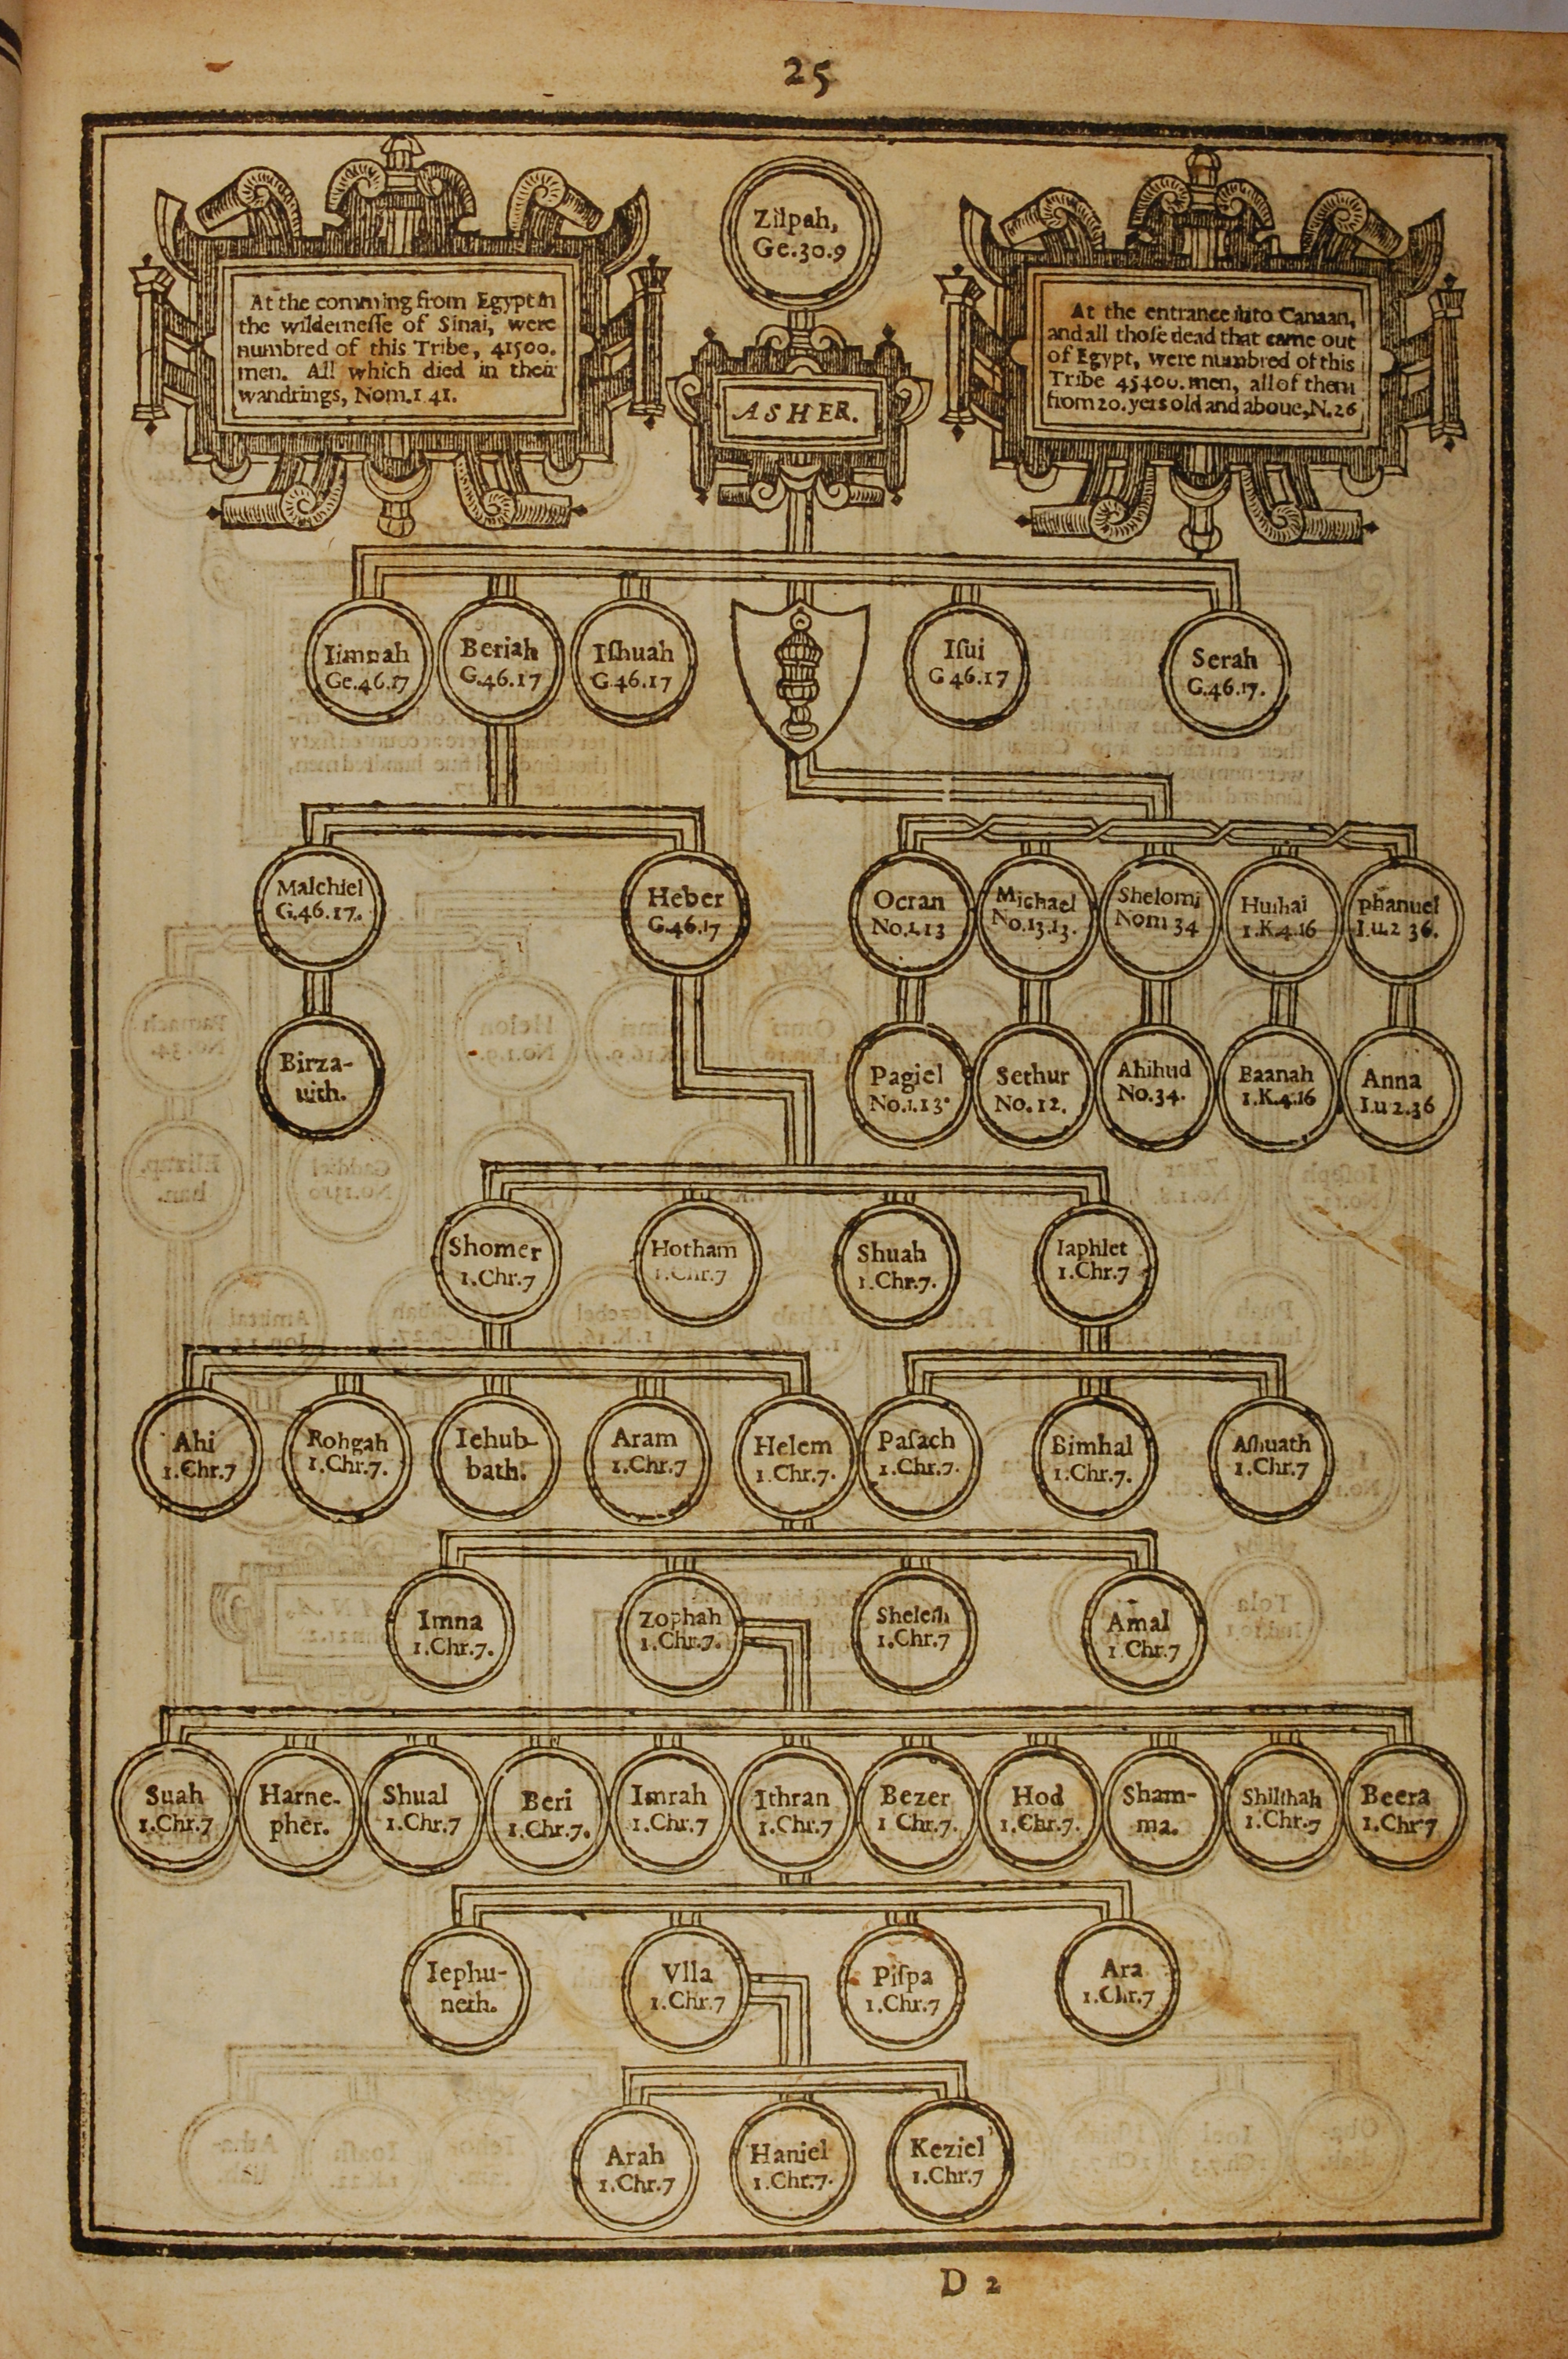 25
Zilpah,
Ge.30.9
At the comming from Egypt in
the wildernesſe of Sinai, were
numbred of this Tribe, 41500.
men. All which died in their
wandrings, Nom.1 41.
ASHER.
At the entrance into Canaan,
and all thoſe dead that came out
of Egypt, were numbred of this
Tribe 45400. men, all of them
from 20. yers old and aboue, N.26
Iimnah
Ge.46.17
Beriah
G.46.17
Iſhuah
G.46.17
Iſui
G 46.17
Serah
G.46.17.
Malchiel
G.46.17.
Heber
G.46.17
Ocran
No.1.13
Michael
No.13.13.
Shelomi
Nom 34
Huſhai
1.K.4.16
phanuel
Lu.2 36.
Birza-
uith.
Pagiel
No.1.13.
Sethur
No.12.
Ahihud
No.34.
Baanah
1.K.4.16
Anna
Lu 2.36
Shomer
1.Chr.7
Hotham
1.Chr.7
Shuah
1.Chr.7.
Iaphlet
1.Chr.7
Ahi
1.Chr.7
Rohgah
1.Chr.7.
Iehub-
bath.
Aram
1.Chr.7
Helem
1.Chr.7.
Paſach
1.Chr.7.
Bimhal
1.Chr.7.
Aſhuath
1.Chr.7
Imna
1.Chr.7.
Zophah
1.Chr.7.
Sheleſh
1.Chr.7
Amal
1 Chr.7
Suah
1.Chr.7
Harne-
pher.
Shual
1.Chr.7
Beri
1.Chr.7.
Imrah
1.Chr.7
Ithran
1.Chr.7
Bezer
1 Chr.7.
Hod
1.Chr.7.
Sham-
ma.
Shilſhah
1.Chr.7
Beera
1.Chr 7
Iephu-
neth.
Vlla
1.Chr.7
Piſpa
1.Chr.7
Ara
1.Chr.7
Arah
1.Chr.7
Haniel
1.Chr.7.
Keziel
1.Chr.7
D 2